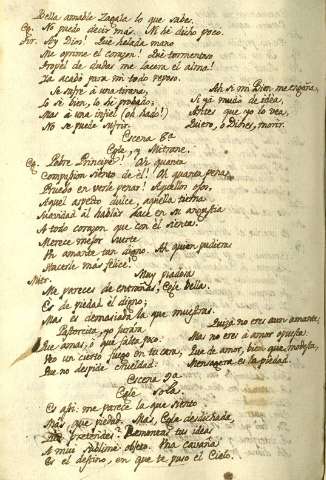 Della amable Zagala lo que sabe.
Eg. No puedo decir mas. Ni hè dicho poco.
Tir. Soy Dios! Què helada mano
Me oprime el corazon! Què tormentoso
Tropel de dudas me lacera el alma!
Ya acabò para mi todo reposo.
Se sufre à una tirana,
Lo sè bien, lo hè probado;
Mas à una infiel (oh hado!)
No se puede sufrir.
Ah si mi Bien me engaña,
Si yà mudò de idea,
Antes que yo lo vea,
Quiero, o Dioses, morir.
Escena 8ª
Egle, y Mitrane.
Eg. Pobre Principe! Ah quanta
Compasion siento de èl! Ah quanta pena
Pruebo en verle penar! Aquellos ojos,
Aquel aspecto dulce, aquella tierna
Suavidad al hablar hace en su angustia
A todo corazon que con èl sienta.
Merece mejor suerte
Un amante tan digno. Ah quien pudiera
Hacerle mas felice!
Mitr. Muy piadosa
Me pareces de entrañas, Egle bella.
Eg. Es de piedad èl digno;
Mas es demasiada la que muestras.
Pastorcita, yo jurara
Que amas, ò que falta poco:
Veo un cierto fuego en tu cara,
Que no despide crueldad.
Quizà no eres aun amante,
Mas no eres à amor opuesta;
Que de amor, bien que modesta,
Mensagera es la piedad.
Escena 9ª
Egle sola.
Es asi: me parece la que siento
Mas que piedad. Mas, Egle desdichada,
Què pretendes? Remontas tus ideas
A muy sublime objeto. Una cavaña
Es el destino, en que te puso el Cielo.